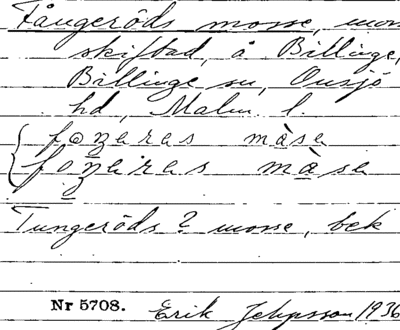 Fångeröds mosse, mosse
skiftad, å Billinge,
Billinge sn, Onsjö
hd, Malm. l.
mòse
mòse
Tungeröds? mosse, bek
Nr 5708. Erik Jepsson 1936